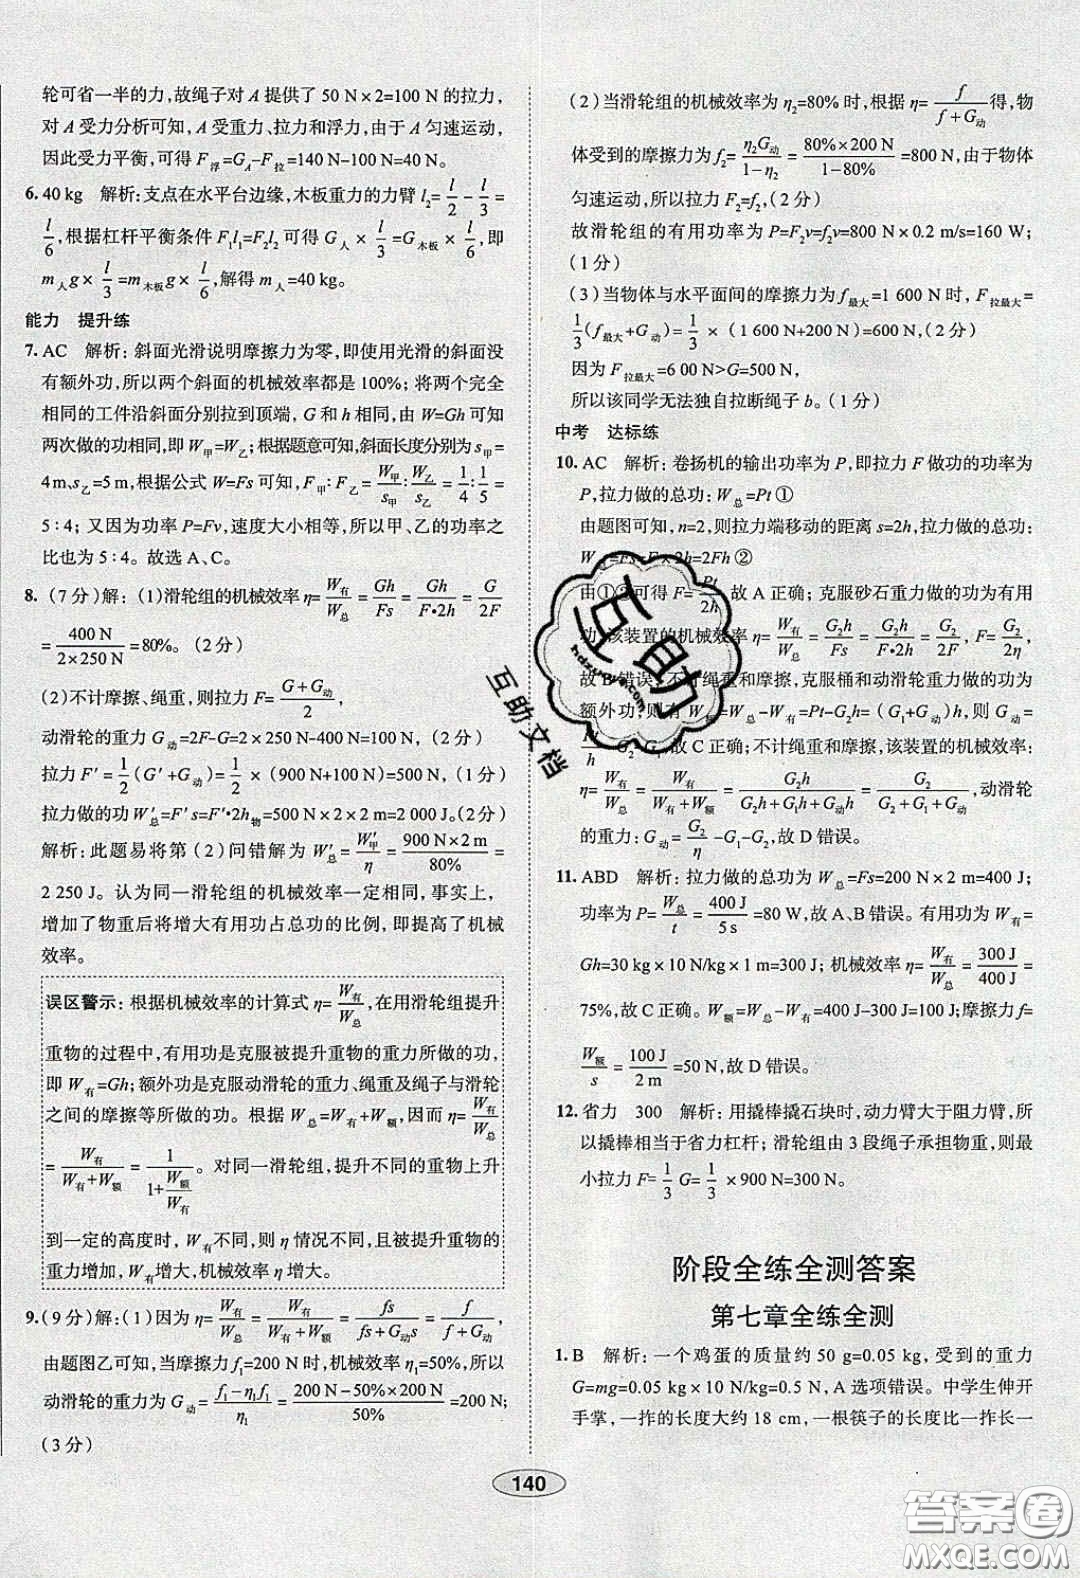 轮可省一半的力,故绳子对 A 提供了 50 N×2=100 N 的拉力,
对 A 受力分析可知,A 受重力、拉力和浮力,由于 A 匀速运动,
因此受力平衡,可得 F浮=GA-F拉=140 N-100 N=40 N。
6. 40 kg 解析:支点在水平台边缘,木板重力的力臂 l2=l/2-l/3=
l/6,根据杠杆平衡条件 F1l1=F2l2 可得:G人×l/3=G木板×l/6,即
m人g×l/3=m木板g×l/6,解得 m人=40 kg。
能力 提升练
7. AC 解析:斜面光滑说明摩擦力为零,即使用光滑的斜面没
有额外功,所以两个斜面的机械效率都是 100%;将两个完全
相同的工件沿斜面分别拉到顶端,G 和 h 相同,由 W=Gh 可知
两次做的功相同,即 W甲=W乙;根据题意可知,斜面长度分别为 s甲=
4 m、s乙=5 m,根据公式 W=Fs 可知,F甲:F乙=W甲/s甲:W乙/s乙=1/4:1/5=
5:4;又因为功率 P=Fv,速度大小相等,所以甲、乙的功率之
比也为 5:4。故选 A、C。
8. (7 分)解:(1)滑轮组的机械效率 η=W有/W总=Gh/Fs=Gh/F·2h=G/2F
=400 N/2×250 N=80%。(2 分)
(2)不计摩擦、绳重,则拉力 F=G+G动/2,
动滑轮的重力 G动=2F-G=2×250 N-400 N=100 N(2 分)
拉力 F′=1/2(G′+G动)=1/2×(900 N+100 N)=500 N,(1 分)
拉力做的功 W′总=F′s=F′·2h物=500 N×2×2 m=2 000 J。(2分)
解析:此题易将第(2)问错解为 W′总=W′甲/η=900 N×2 m/80%=
2 250 J。认为同一滑轮组的机械效率一定相同,事实上,
增加了物重后将增大有用功占总功的比例,即提高了机械
效率。
误区警示:根据机械效率的计算式 η=W有/W总,在用滑轮组提升
重物的过程中,有用功是克服被提升重物的重力所做的功,
即 W有=Gh;额外功是克服动滑轮的重力、绳重及绳子与滑轮
之间的摩擦等所做的功。根据 W总=W有+W额,因而 η=W有/W总
=W有/W有+W额=1/1+W额/W有。对同一滑轮组,提升不同的重物上升
到一定的高度时,W有不同,则 η 情况不同,且提升重物的
重力增加,W有增大,机械效率 η 增大。
9. (9 分)解:(1)因为 η=W有/W总=W有/W有+W额=fs/fs+G动s=f/f+G动,
由题图乙可知,当摩擦力 f1=200 N 时,机械效率 η1=50%,所以
动滑轮的重力为 G动=f1-η1f1/η1=200 N-50%×200 N/50%=200 N,
(3 分)
(2)当滑轮组的机械效率为 η2=80%时,根据 η=f/f+G动得,物
体受到的摩擦力为 f2=η2G动/1-η2=80%×200 N/1-80%=800 N,由于物体
匀速运动,所以拉力 F2=f2,(2 分)
故滑轮组的有用功率为 P=F2v=f2v=800 N×0.2 m/s=160 W;
(1 分)
(3)当物体与水平面间的摩擦力为 f最大=1 600 N 时,F拉最大=
1/3(f最大+G动)=1/3×(1 600 N+200 N)=600 N,(2 分)
因为 F拉最大=6 00 N>G=500 N,
所以该同学无法独自拉断绳子 b。(1 分)
中考 达标练
10. AC 解析:卷扬机的输出功率为 P,即拉力 F 做功的功率为
P,拉力做的总功:W总=Pt ①
由题图可知,n=2,则拉力端移动的距离 s=2h,拉力做的总功:
W总=Fs=F×2h=2Fh ②
由①②可得 F=Pt/2h,故 A 正确;克服砂石重力做的功为有用
功,该装置的机械效率 η=W有/W总=G2h/Fs=G2h/F·2h=G2/2F,F=G2/2η,
故 B 错误;不计绳重和摩擦,克服桶和动滑轮重力做的功为
额外功,则有 W额=W总-W有=Pt-G2h=(G1+G动)h,则 G动=
Pt/h-G2-G1,故 C 正确;不计绳重和摩擦,该装置的机械效率:
η=W有/W总=W有/W有+W额=G2h/G2h+G1h+G动h=G2/G2+G1+G动,动滑轮
的重力:G动=G2/η-G1-G2,故 D 错误。
11. ABD 解析:拉力做的总功为 W总=Fs=200 N×2 m=400 J,
功率为 P=W总/t=400 J/5 s=80 W,故 A、B 错误。有用功为 W有=
Gh=30 kg×10 N/kg×1 m=300 J;机械效率 η=W有/W总=300 J/400 J=
75%,故 C 正确。W额=W总-W有=400 J-300 J=100 J;摩擦力 f=
W额/s=100 J/2 m=50 N,故 D 错误。
12. 省力 300 解析:用撬棒撬石块时,动力臂大于阻力臂,所
以撬棒相当于省力杠杆;滑轮组由 3 段绳子承担物重,则最
小拉力 F=1/3 G=1/3×900 N=300 N。
阶段全练全测答案
第七章全练全测
1. B 解析:一个鸡蛋的质量约 50 g=0.05 kg,受到的重力
G=mg=0.05 kg×10 N/kg=0.5 N,A 选项错误。中学生伸开
手掌,一拃的长度大约 18 cm,一根筷子的长度比一拃长一
140
互助
hdzuoye.com
互助文档
答案圈
MXQE.COM